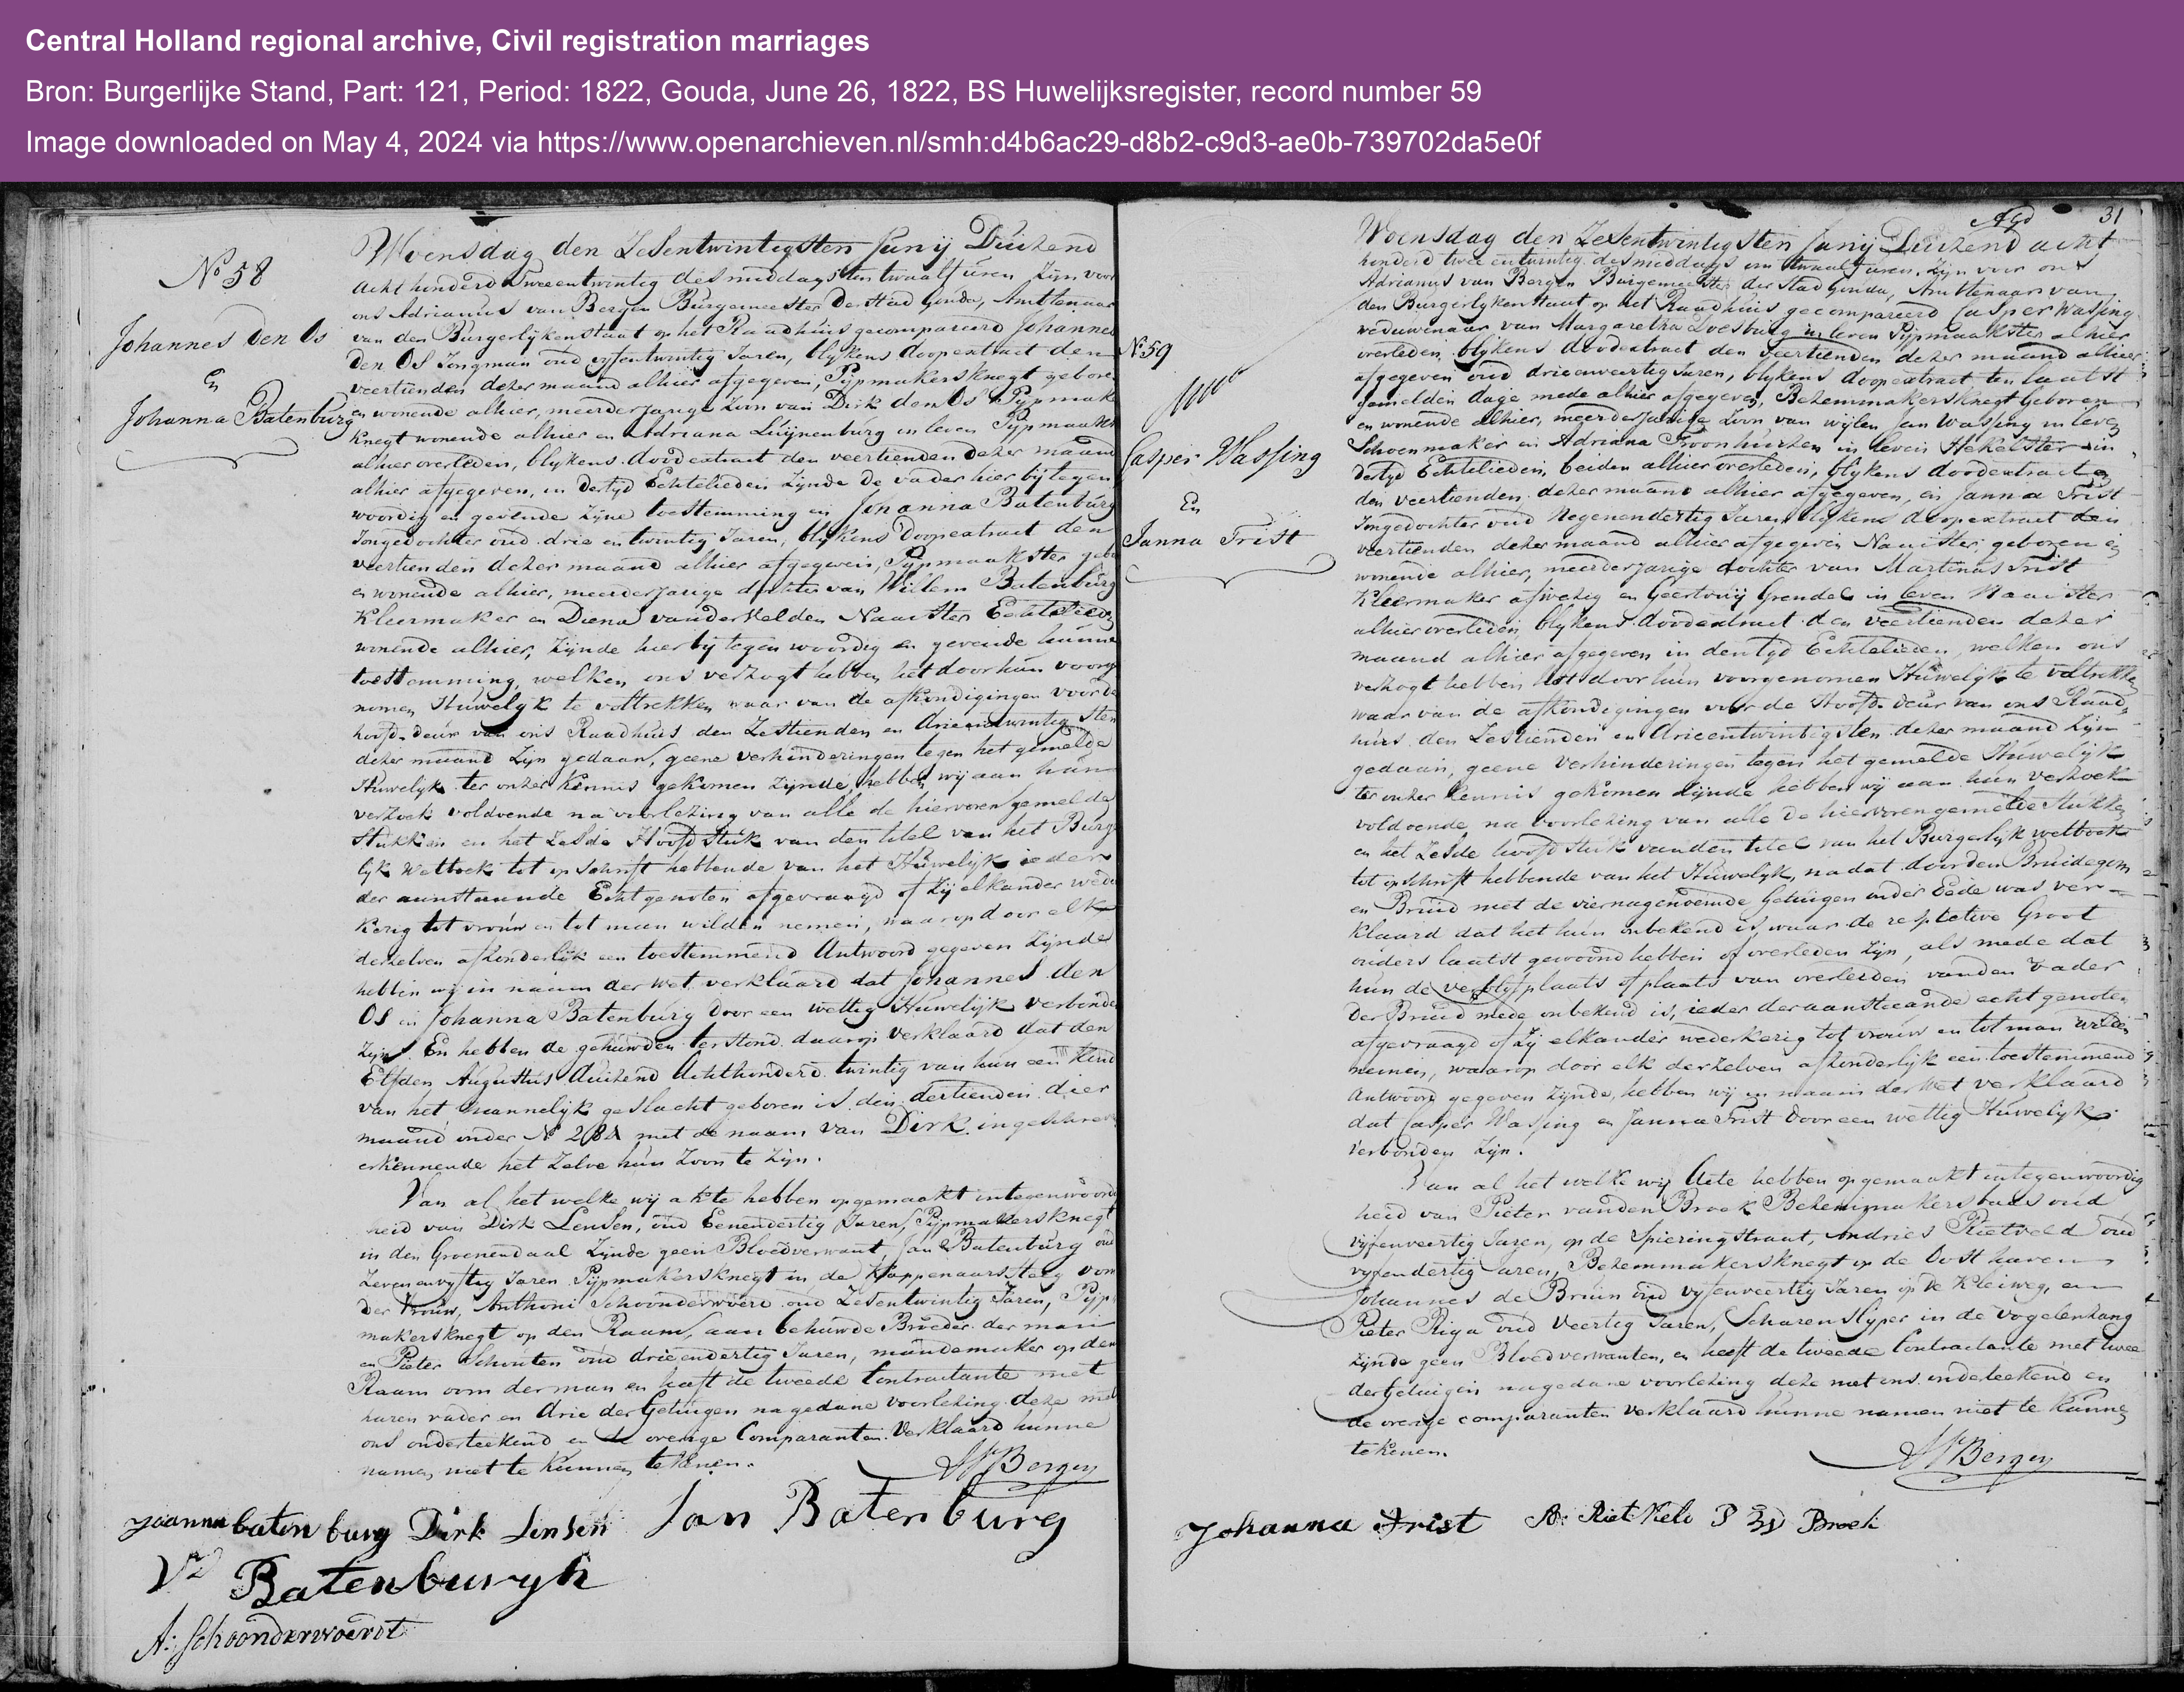 Central Holland regional archive, Civil registration marriages
Bron: Burgerlijke Stand, Part: 121, Period: 1822, Gouda, June 26, 1822, BS Huwelijksregister, record number 59
Image downloaded on May 4, 2024 via https://www.openarchieven.nl/smh:d4b6ac29-d8b2-c9d3-ae0b-739702da5e0f
No 58
Johannes den Os
En
Johanna Batenburg
Woensdag den Zesentwintigsten Junij Duizend
acht honderd Tweeentwintig des middags ten twaalf uren Zijn voor
ons Adrianus van Bergen Burgemeester der Stad Gouda, Ambtenaar
van den Burgerlijken staat op het Raadhuis gecompareerd Johannes
den Os Jongman oud vyfentwintig Jaren, blykens doopextract den
veertienden dezer maand alhier afgegeven, Pijpmakersknegt gebore
en wonende alhier, meerderjarige Zoon van Dirk den Os Pijpmak
knegt wonende alhier en Adriana Luijnenburg in leven Pijpmaakst
alhier overleden, blykens doodextract den veertienden dezer maand
alhier afgegeven, in dertyd Echtelieden Zijnde de vader hier bij tegen
woordig en gevende Zijne toestemming en Johanna Batenburg
Jongedochter oud drie en twintig Jaren, blykens Doopextract den
veertienden dezer maand alhier afgegeven, Pijpmaakster gebo
en wonende alhier, meerderjarige dochter van Willem Batenburg
Kleermaker en Diena vander Velden Naaister Echtelieden
wonende alhier, Zijnde hier bij tegenwoordig en gevende hunne
toestemming, welken ons verzogt hebben het door hun voorge
nomen Huwelyk te voltrekken waar van de afkondigingen voor de
hoofd-deur van ons Raadhuis den Zestienden en drieentwintigsten
dezer maand Zijn gedaan, geene verhinderingen tegen het gemelde
Huwelijk ter onzer kennis gekomen Zijnde, hebben wij aan hun
verzoek voldoende na voorlezing van alle de hiervoren gemelde
Stukken en het Zesde Hoofdstuk van den titel van het Burg
lijk Wetboek tot opschrift hebbende van het Huwelijk ieder
der aanstaande Echtgenoten afgevraagd of Zij elkander wede
kerig tot vrouw en tot man wilden nemen, waarop door elk
derzelven afzonderlijk een toestemmend Antwoord gegeven Zijnde
hebben wij in naam der wet verklaard dat Johannes den
Os en Johanna Batenburg door een wettig Huwelijk verbonde
Zijn. En hebben de gehuwden terstond daarop verklaard dat den
Elfden Augustus duizend Achthonderd twintig van hun een Kind
van het mannelijk geslacht geboren is den dertienden dier
maand onder No met de naam van Dirk ingeschreve
erkennende het Zelve hun Zoon te Zijn.
Van al het welke wij akte hebben opgemaakt in
heid van Dirk Lensen, oud Eenendertig Jaren, Pijpmakersknegt
in den Groenendaal Zijnde geen Bloedverwant, Jan Batenburg oud
Zevenenvyftig Jaren Pijpmakersknegt in de Kappenaarssteeg oom
der Vrouw, Anthoni Schoonderwoerd oud Zesentwintig Jaren, Pijp
makersknegt op den Raam, aan behuwde Broeder der man
en Pieter Schouten oud drieendertig Jaren, mandemaker op den
Raam oom der man en heeft de tweede Contractante met
haren vader en drie der Getuigen na gedane voorlezing deze met
ons onderteekend en de overige Comparanten verklaard hunne
namen niet te kunnen tekenen.
Joanna baten burg Dirk Lensen Jan Batenburg
Batenburgh
A: Schoonderwoerdt
31
No 59
Casper Wassing
En
Janna Trist
Woensdag den Zesentwintigsten Junij Duizend acht
honderd twee entwintig des middags om twaalf uren, Zijn voor ons
Adrianus van Bergen Burgemeester der Stad Gouda, Ambtenaar van
den Burgerlyken Staat op het Raadhuis gecompareerd Casper Wassing
weduwenaar van Margaretha Doesburg in leven Pijpmaakster alhier
overleden, blykens doodextract den veertienden dezer maand alhier
afgegeven oud drieenveertig Jaren, blykens doopextract ten laatst
gemelden dage mede alhier afgegeven, Bezemmakersknegt Geboren
en wonende alhier, meerderjarige Zoon van wijlen Jan Wassing in leven
Schoenmaker en Adriana in leven Hekelster in
dertyd Echtelieden, beiden alhier overleden, blykens doodextracten
den veertienden dezer maand alhier afgegeven, en Janna Trist
Jongedochter oud Negenendertig Jaren blykens doopextract den
veertienden dezer maand alhier afgegeven Naaister, geboren en
wonende alhier, meerderjarige dochter van Martinus Trist
Kleermaker afwezig en Geertruij Grendel in leven Naaister
alhier overleden, blykens doodextract den veertienden dezer
maand alhier afgegeven in dentyd Echtelieden, welken ons
verzogt hebben het door hun voorgenomen Huwelijk te voltrekken
waar van de afkondigingen voor de Hoofd-deur van ons Raad
huis den Zestienden en drieentwintigsten dezer maand Zijn
gedaan, geene verhinderingen tegen het gemelde Huwelijk
ter onzer kennis gekomen Zijnde hebben wij aan hun verzoek
voldoende, na voorlezing van alle de hiervorengemelde stukken
en het Zesde hoofdstuk van den titel van het Burgerlijk wetboek
tot opschrift hebbende van het Huwelyk, nadat door den Bruidegom
en Bruid met de viernagenoemde Getuigen onder Eede was ver
klaard dat het hun onbekend is, waar de respective Groot
ouders laatst gewoond hebben of overleden Zijn, als mede dat
hun de verblyfplaats of plaats van overleiden vanden Vader
der Bruid mede onbekend is, ieder der aanstaande echtgenoten
afgevraagd of Zij elkander wederkerig tot vrouw en tot man wilden
nemen, waarop door elk derzelven afzonderlijk een toestemmend
Antwoord gegeven Zijnde, hebben wij in naam der Wet verklaard
dat Casper Wassing en Janna Trist door een wettig Huwelyk
verbonden Zijn.
Van al het welke wij Acte hebben opgemaakt in tegenwoordig
heid van Pieter vanden Broek Bezemmakersbaas oud
vijfenveertig Jaren, op de Spieringstraat, Andries Rietveld oud
vyfendertig Jaren, Bezemmakersknegt op de Oosthaven
Johannes de Bruin oud vyfenveertig Jaren op de Kleiweg, en
Pieter Riga oud Veertig Jaren, Scharenslyper in de Vogelenzang
Zijnde geen Bloedverwanten, en heeft de tweede Contractante met twee
der Getuigen na gedane voorlezing deze met ons onderteekend en
de overige comparanten verklaard hunne namen niet te kunnen
tekenen.
Johanna Trist A: Riet Veld P Broek